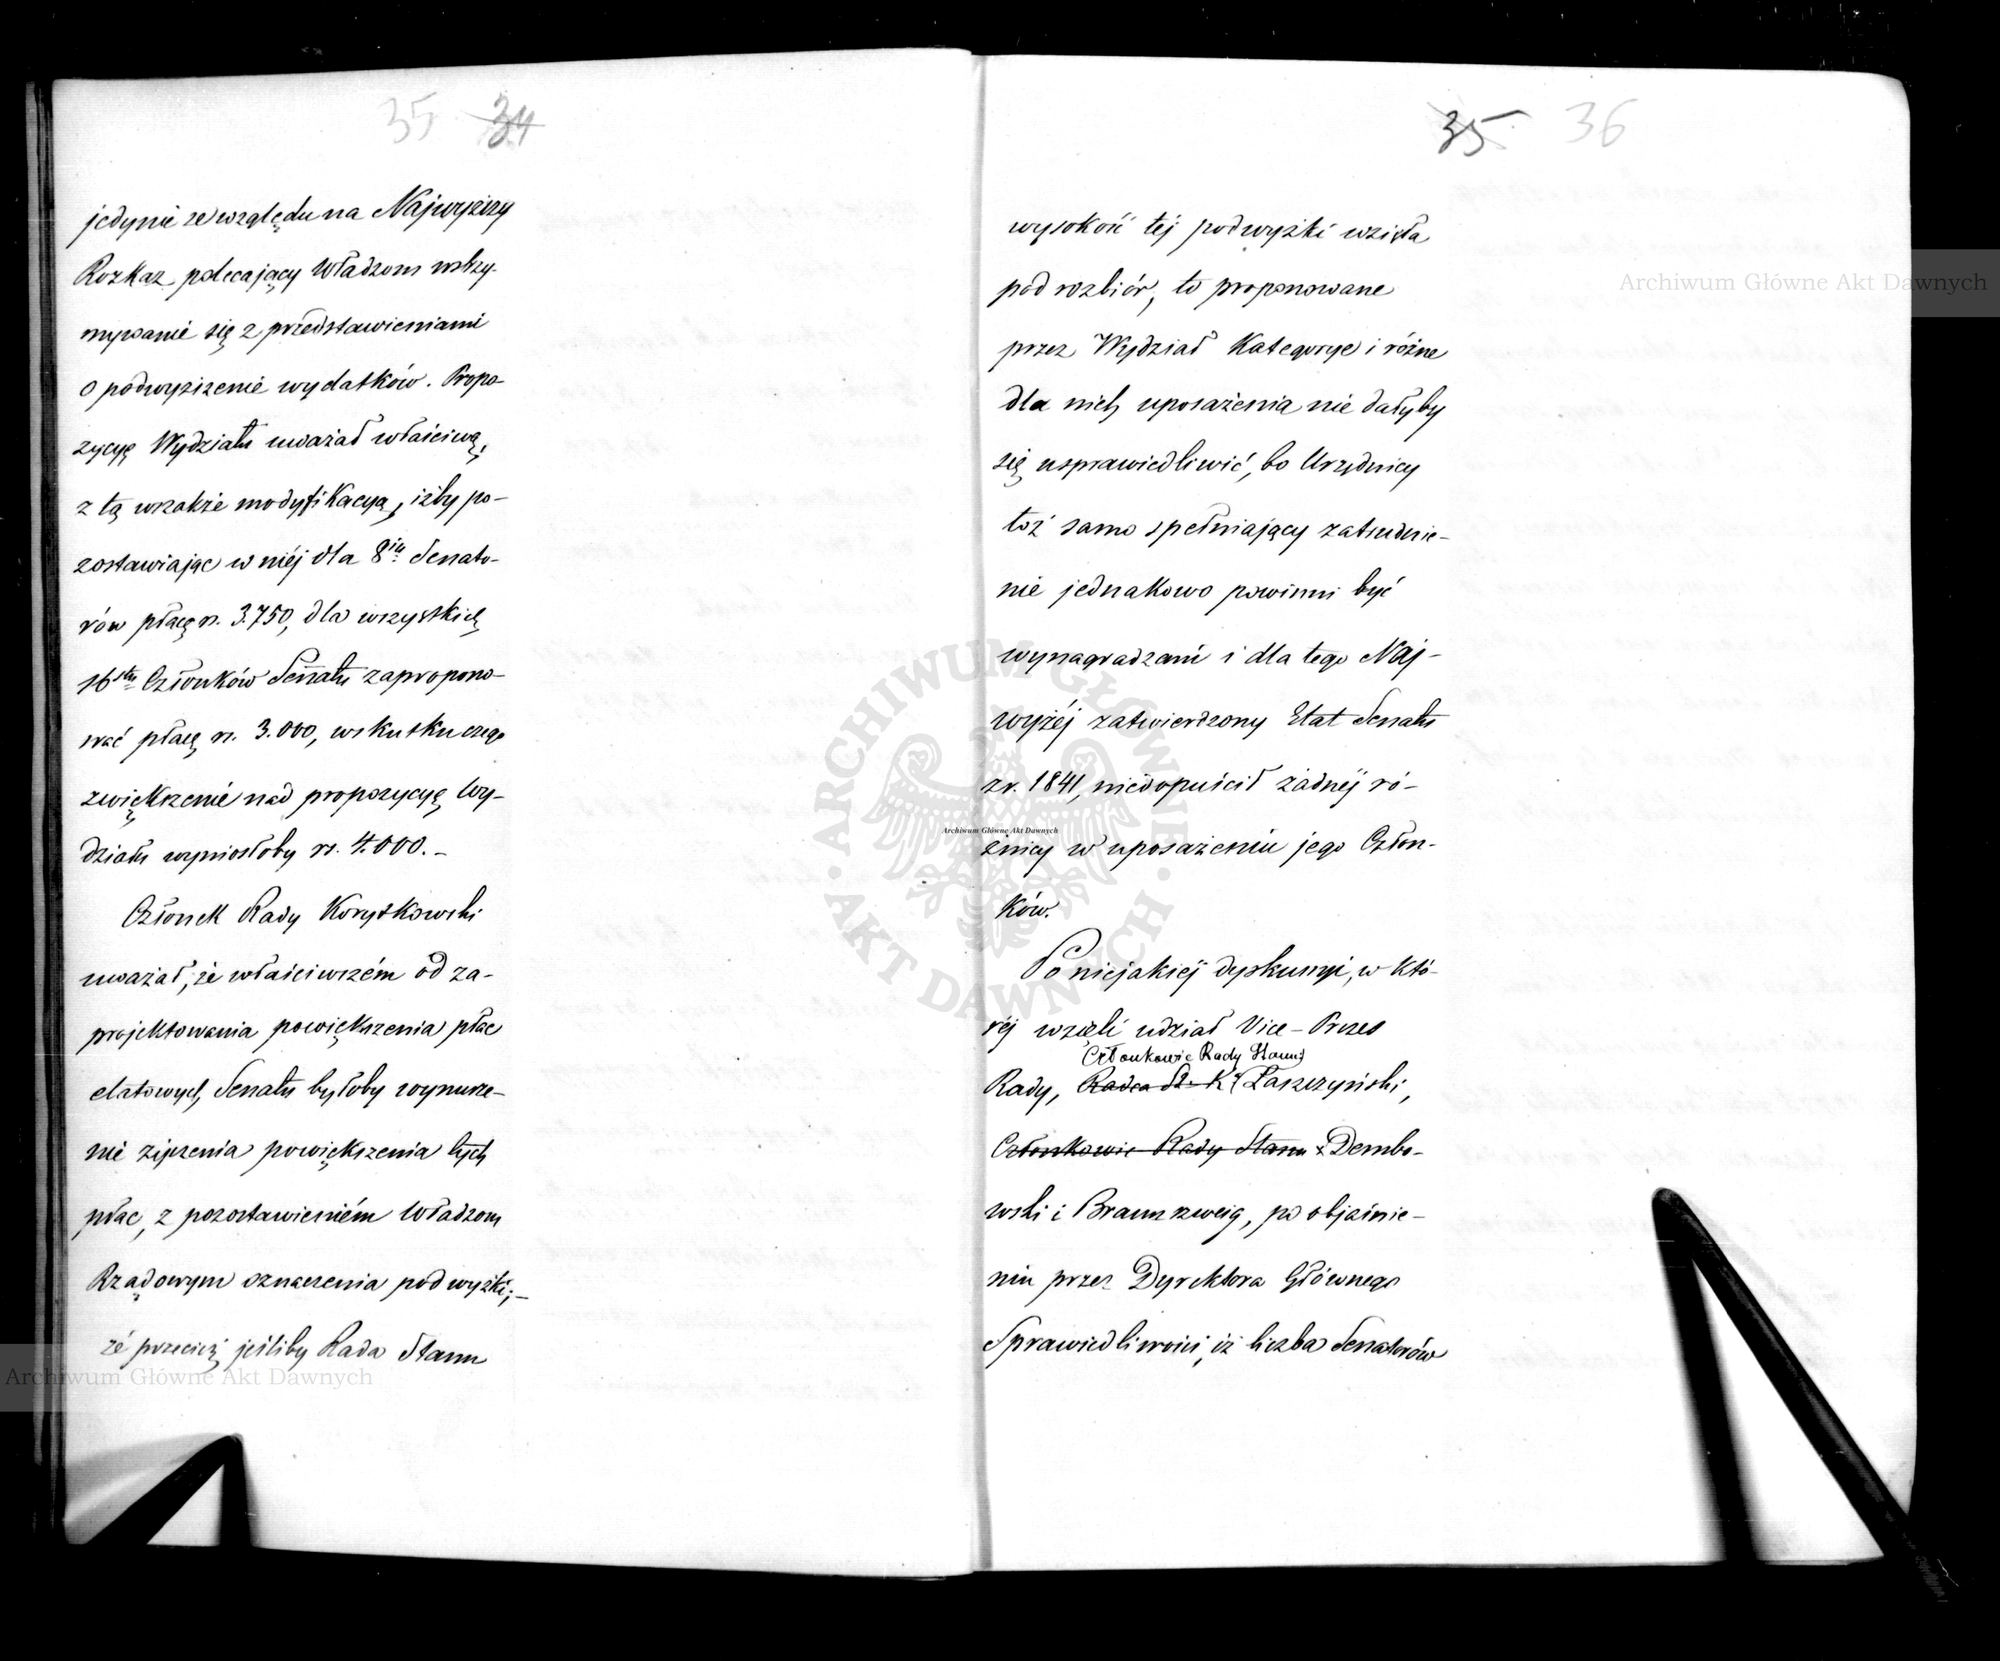 35 34
jedynie ze względu na Najwyższy
Rozkaz polecający Władzom wstrzy-
mywanie się z przedstawieniami
o podwyższenie wydatków. Propo-
zycyę Wydziału uważał właściwą,
z tą wszakże modyfikacyą, iżby po-
zostawiając w niéj dla 8iu Senato-
rów płacę rs. 3.750, dla wszystkich
16stu Członków Senatu zapropono-
wać płacę rs. 3.000, wskutku czego
zwiększenie nad propozycyę Wy-
działu wyniosłoby rs. 4.000.-
Członek Rady Korytkowski
uważał, że właściwszém od za-
projektowania powiększenia płac
etatowych Senatu byłoby wynurze-
nie życzenia powiększenia tych
płac, z pozostawieniém Władzom
Rządowym oznaczenia podwyżki;-
że przecież jeśliby Rada Stanu
35 36
wysokość téj podwyżki wzięła
pod rozbiór, to proponowane
przez Wydział Kategorye i różne
dla nich uposażenia nie dałyby
się usprawiedliwić, bo Urzędnicy
toż samo spełniający zatrudnie-
nie jednakowo powinni być
wynagradzani i dla tego Naj-
wyżéj zatwierdzony Etat Senatu
z r. 1841, niedopuścił żadnéj ró-
żnicy w uposażeniu jego Człon-
ków.
Po niejakiéj dyskussyi, w któ-
réj wzięli udział Vice-Prezes
Członkowie Rady Stanu
Rady, Radca St. Łaszczyński,
Członkowie Rady Stanu Dembo-
wski i Braunszweig, po objaśnie-
niu przez Dyrektora Głównego
Sprawiedliwości, iż liczba Senatorów
Archiwum Główne Akt Dawnych
Archiwum Główne Akt Dawnych
Archiwum Główne Akt Dawnych
ARCHIWUM GŁÓWNE AKT DAWNYCH